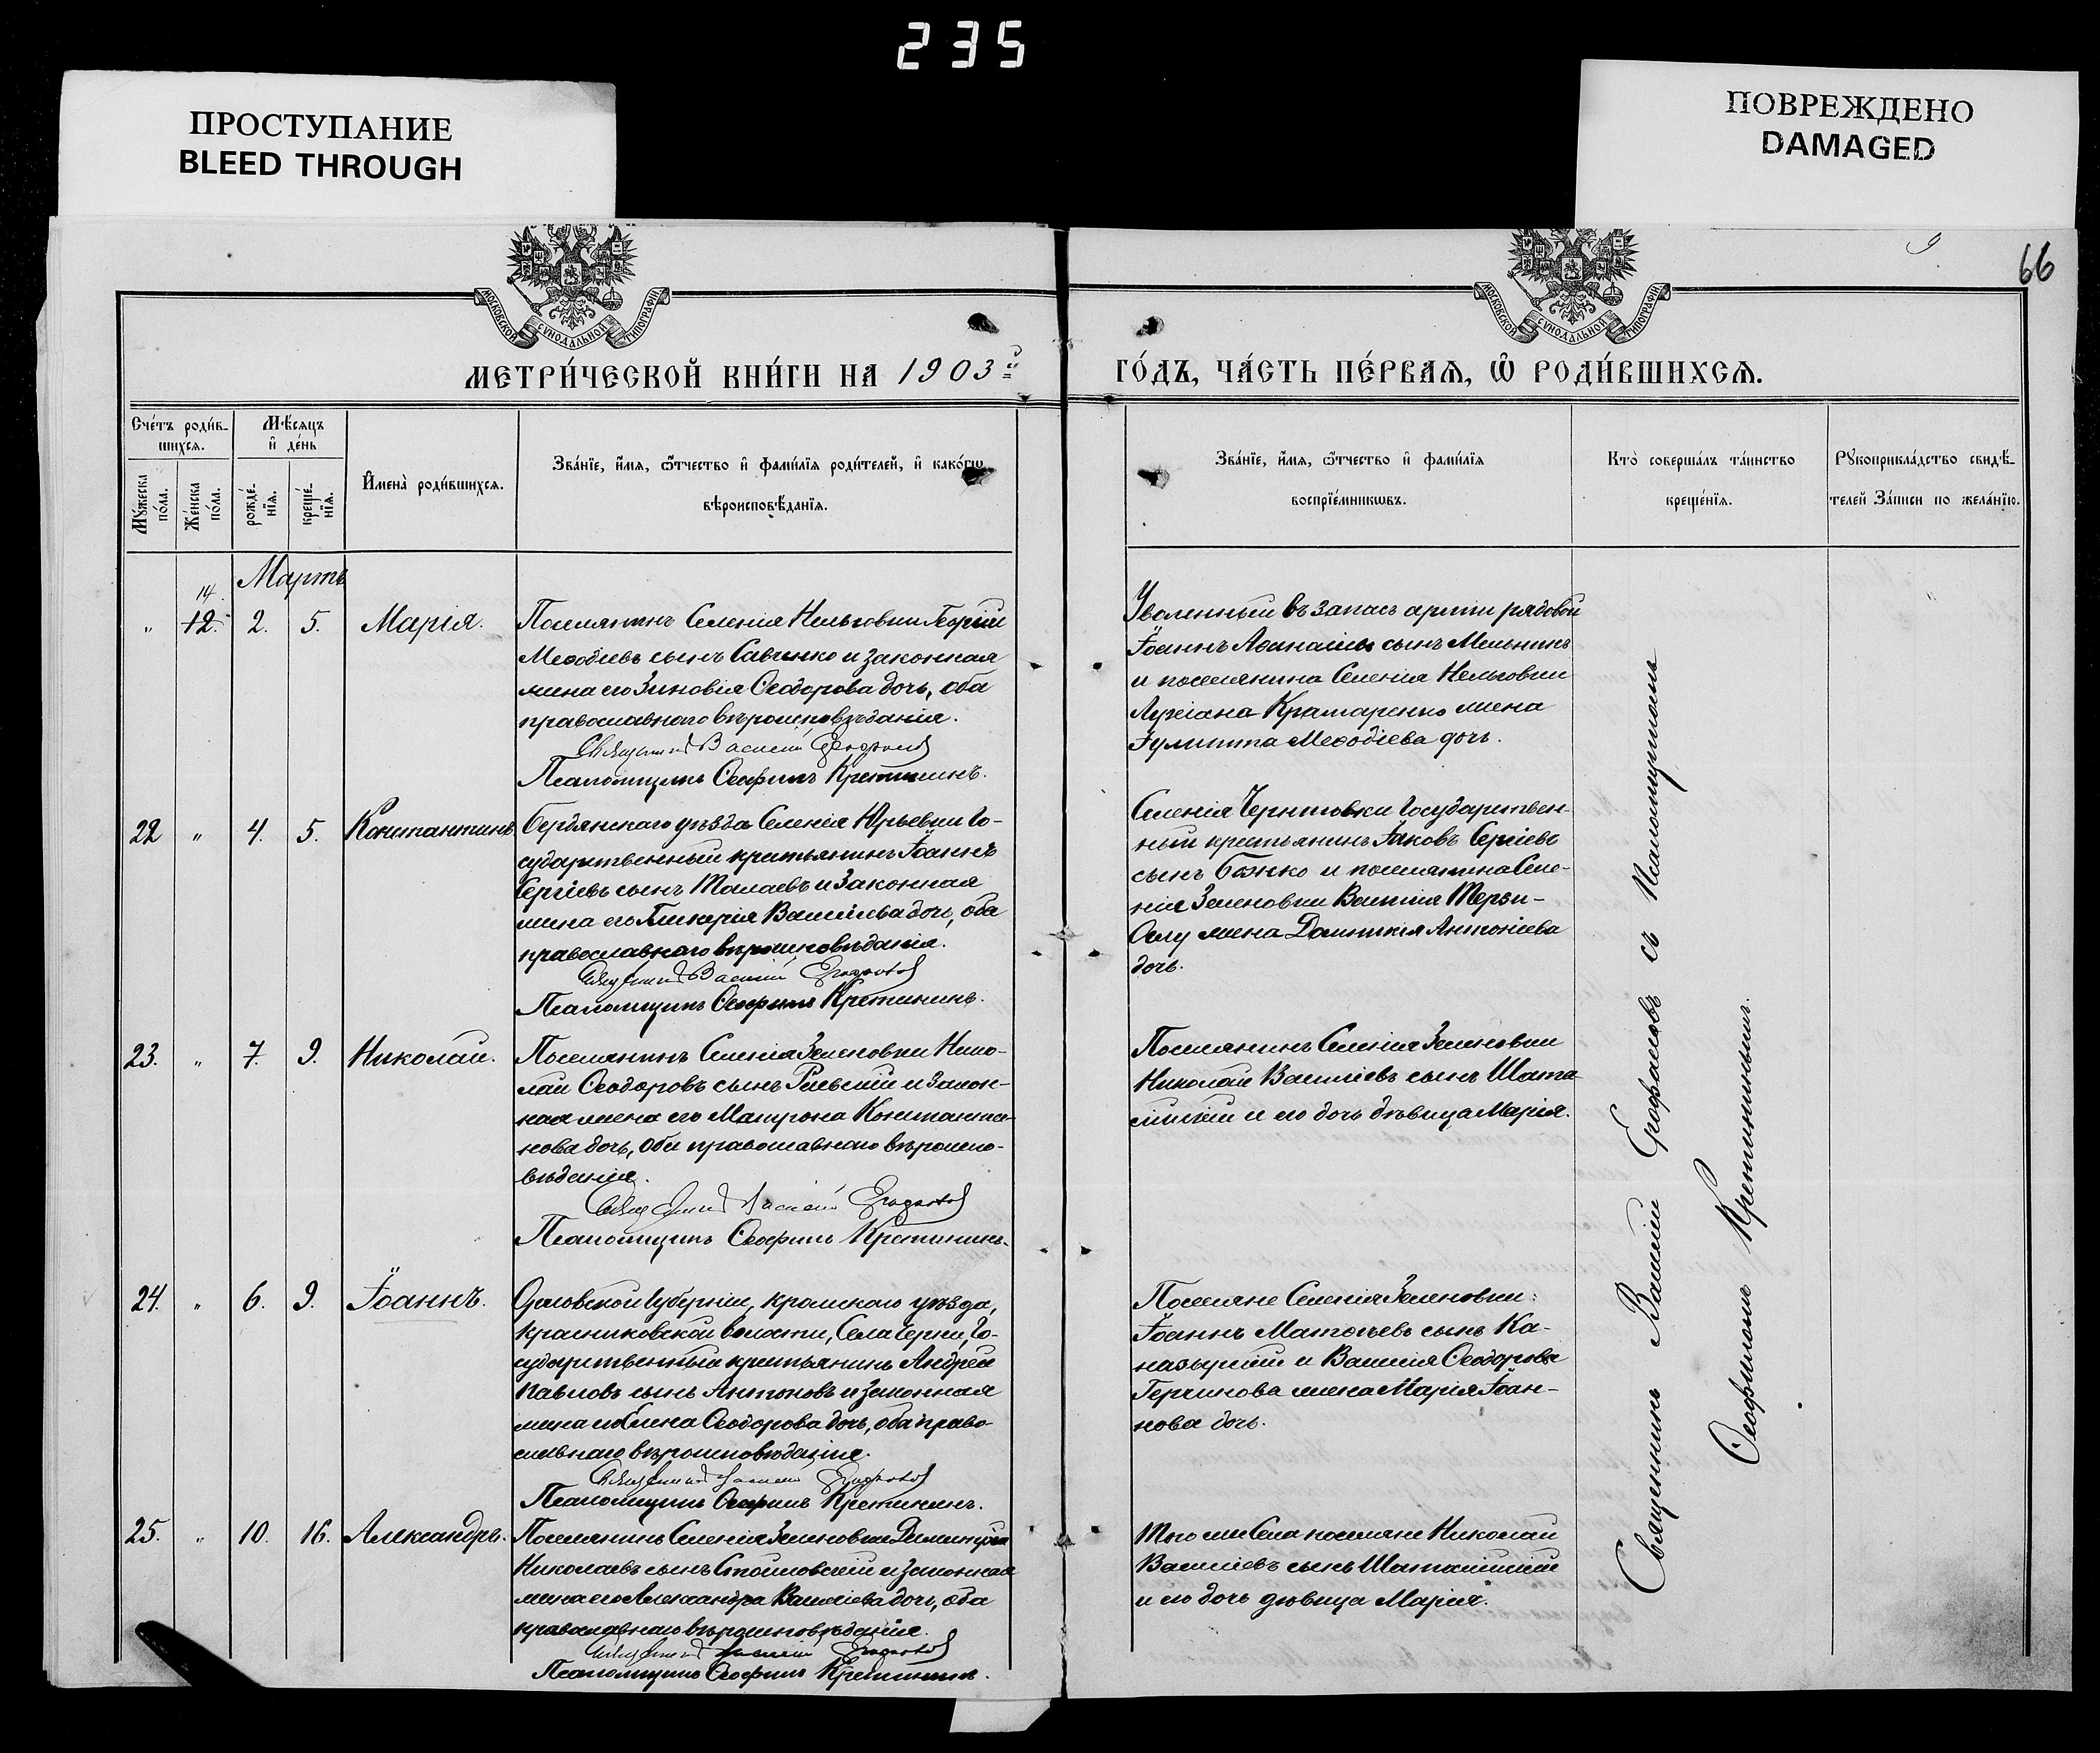 235
ПРОСТУПАНИЕ
BLEED THROUGH
ПОВРЕЖДЕНО
DAMAGED
66
МОСКОВСКОЙ СѴНОДАЛЬНОЙ ТИПОГРАФІИ
МОСКОВСКОЙ СѴНОДАЛЬНОЙ ТИПОГРАФІИ
МЕТРИ́ЧЕСКОЙ КНИ́ГИ НА 1903й
ГО́ДЪ, ЧА́СТЬ ПЕ́РВАЯ, Ѡ҆ РОДИ́ВШИХСЯ.
Сче́тъ роди́в-
шихся.
Мѣ́сяцъ
и҆ де́нь
Мꙋ́жеска
по́ла.
Же́нска
по́ла.
рожде́-
нїя.
креще́-
нїя.
И҆мена̀ роди́вшихся.
Зва́нїе, и҆́мя, ѻ҆́тчество и҆ фами́лїя роди́телей, и҆ како́гѡ
вѣроисповѣ́данїя.
Зва́нїе, и҆́мя, ѻ҆́тчество и҆ фами́лїя
воспрїе́мникѡвъ.
Кто̀ соверша́лъ та́инство
креще́нїя.
Рꙋкоприкла́дство свидѣ́-
телей За́писи по жела́нїю.
Мартъ
14.
„ 12. 2. 5. Марія.
Поселянинъ Селенія Нельговки Георгій
Меѳодіевъ сынъ Савченко и законная
жена его Зиновія Ѳеодорова дочь, оба
православнаго вѣроисповѣданія.
Священникъ Василій Ерофалов
Псаломщикъ Ѳеофилъ Кретининъ.
Уволенный въ запасъ арміи рядовой
Іоаннъ Аѳанасіевъ сынъ Мельникъ
и поселянина Селенія Нельговки
Лукіана Крамаренко жена
Іулитта Меѳодіева дочь.
22 „ 4. 5. Константинъ.
Бердянскаго уѣзда Селенія Юрьевки Го-
сударственный крестьянинъ Іоаннъ
Сергіевъ сынъ Талаевъ и законная
жена его Гликерія Василіева дочь, оба
православнаго вѣроисповѣданія.
Священникъ Василій Ерофалов
Псаломщикъ Ѳеофилъ Кретининъ.
Селенія Черниговки Государствен-
ный крестьянинъ Іаковъ Сергіевъ
сынъ Божко и поселянина Селе-
нія Зеленовки Василія Терзи-
Оглу жена Домникія Антоніева
дочь.
23. „ 7. 9. Николай.
Поселянинъ Селенія Зеленовки Нико-
лай Ѳеодоровъ сынъ и закон-
ная жена его Матрона Константи-
нова дочь, оба православнаго вѣроиспо-
вѣданія.
Священникъ Василій Ерофалов
Псаломщикъ Ѳеофилъ Кретининъ.
Поселянинъ Селенія Зеленовки
Николай Василіевъ сынъ
и его дочь дѣвица Марія.
24. „ 6. 9. Іоаннъ.
Орловской Губерніи, кромскаго уѣзда,
волости, Села Черни, Го-
сударственный крестьянинъ Андрей
Павловъ сынъ Антоновъ и законная
жена его Елена Ѳеодорова дочь, оба право-
славнаго вѣроисповѣданія.
Священникъ Василій Ерофалов
Псаломщикъ Ѳеофилъ Кретининъ.
Поселяне Селенія Зеленовки:
Іоаннъ Матѳеевъ сынъ Ка-
назирскій и Василія Ѳеодорова
Герчикова жена Марія Іоан-
нова дочь.
25. „ 10. 16. Александръ.
Поселянинъ Селенія Зеленовки Димитрій
Николаевъ сынъ Стоиловскій и законная
жена его Александра Василіева дочь, оба
православнаго вѣроисповѣданія.
Священникъ Василій Ерофалов
Псаломщикъ Ѳеофилъ Кретининъ.
Того же Села поселяне Николай
Василіевъ сынъ
и его дочь дѣвица Марія.
Священникъ Василій Ерофаловъ съ Псаломщикомъ
Ѳеофиломъ Кретининымъ.